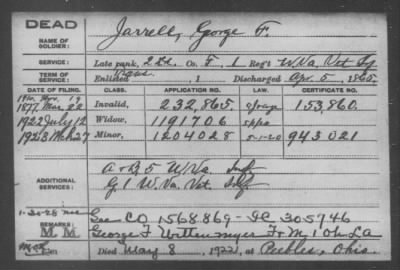 DEAD
NAME OF SOLDIER: Jarrell, George F.
SERVICE: Late rank, 2 Lt. Co. F, 1 Reg't W.Va. Vet Inf
TERM OF SERVICE: Enlisted , 1 Discharged Apr. 5, 1865
DATE OF FILING. CLASS. APPLICATION NO. LAW. CERTIFICATE NO.
1877 Mar. 22 Invalid, 232,865 153,860
1922 July 12 Widow, 1191706
1923 Mch 27 Minor, 1204028 943021
ADDITIONAL SERVICES: A & B 5 W.Va. Inf
G 1 W.Va. Vet. Inf
1-30-28
REMARKS: See CO 1568869 - IC 305746
M.M. George F Wittenmyer F M, 1 Oh. L A
Died May 8, 1922, at Peebles, Ohio.